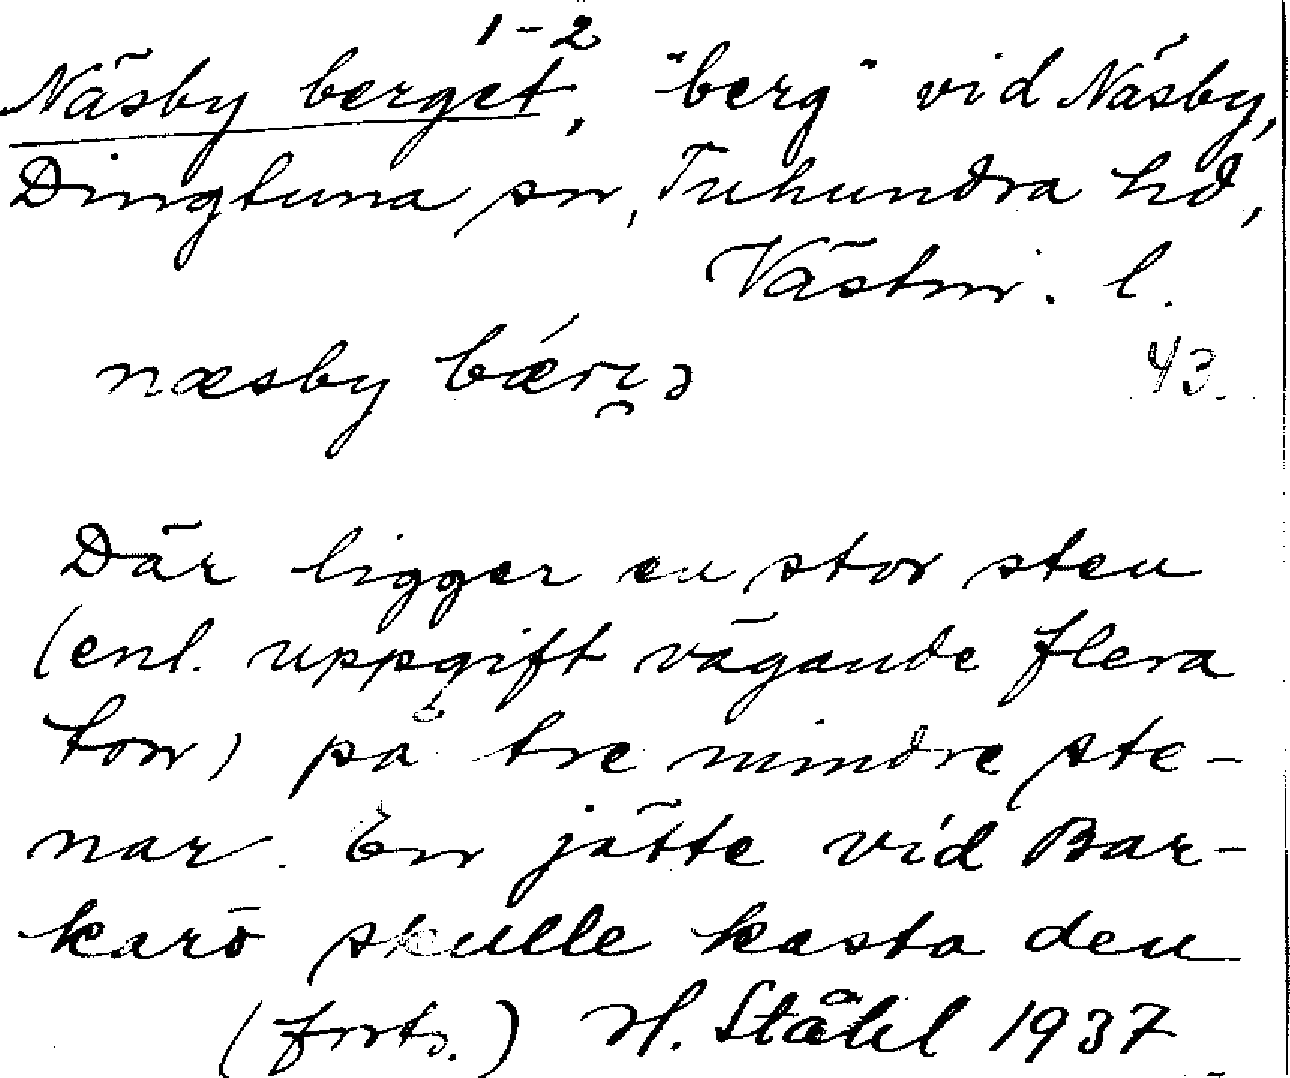 1-2
Näsby berget, "berg" vid Näsby,
Dingtuna sn, Tuhundra hd,
Västm. l.
næsby
43.
Där ligger en stor sten
(enl. uppgift vägande flera
ton) på tre mindre ste-
nar. En jätte vid Bar-
karö skulle kasta den
(forts.) H. Ståhl 1937